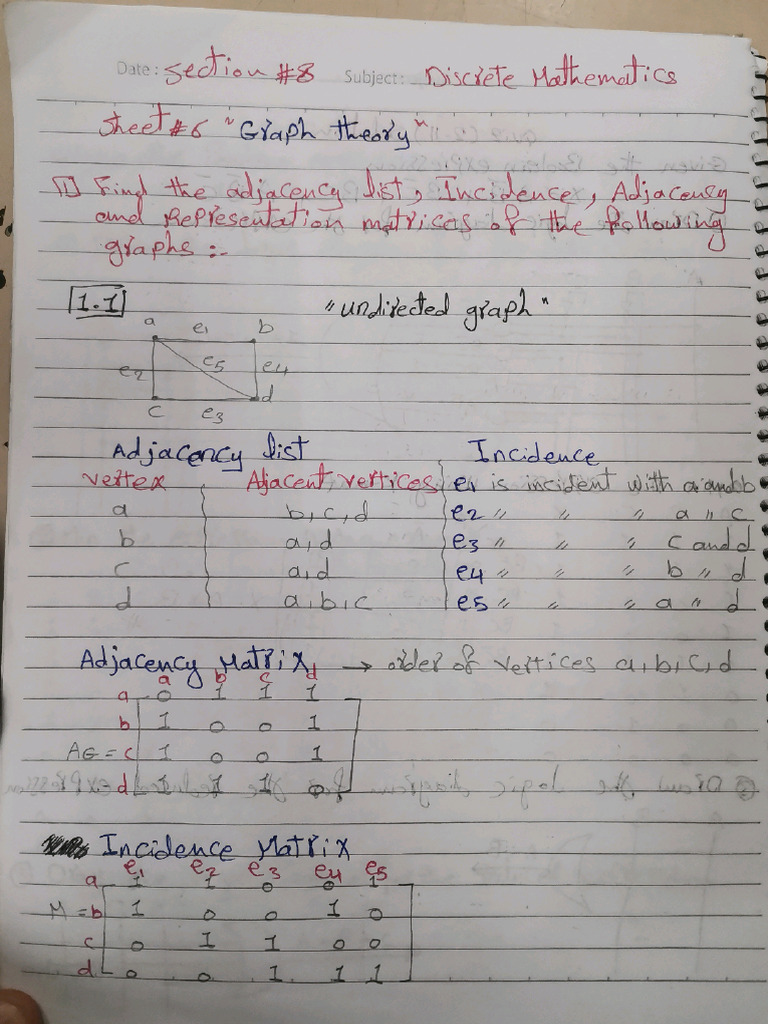 Date: Section #8 Subject: Discrete Mathematics
Sheet #6 "Graph theory"
[1] Find the adjacency list, Incidence, Adjacency
and Representation matrices of the following
graphs :-
1.1 "undirected graph"
a e1 b
e2 e5 e4
c e3 d
Adjacency list Incidence
Vertex Adjacent vertices e1 is incident with a and b
a b, c, d e2 " " " a " c
b a, d e3 " " " c and d
c a, d e4 " " " b " d
d a, b, c e5 " " " a " d
Adjacency Matrix → order of vertices a, b, c, d
a b c d
a 0 1 1 1
b 1 0 0 1
AG = c 1 0 0 1
d 1 1 1 0
Incidence Matrix
e1 e2 e3 e4 e5
a 1 1 0 0 1
M = b 1 0 0 1 0
c 0 1 1 0 0
d 0 0 1 1 1